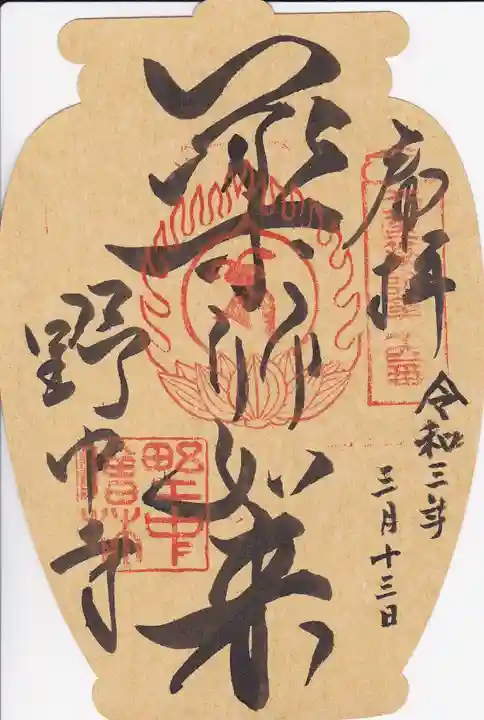 奉拝
令和三年
三月十三日
薬師如来
野中寺
野中